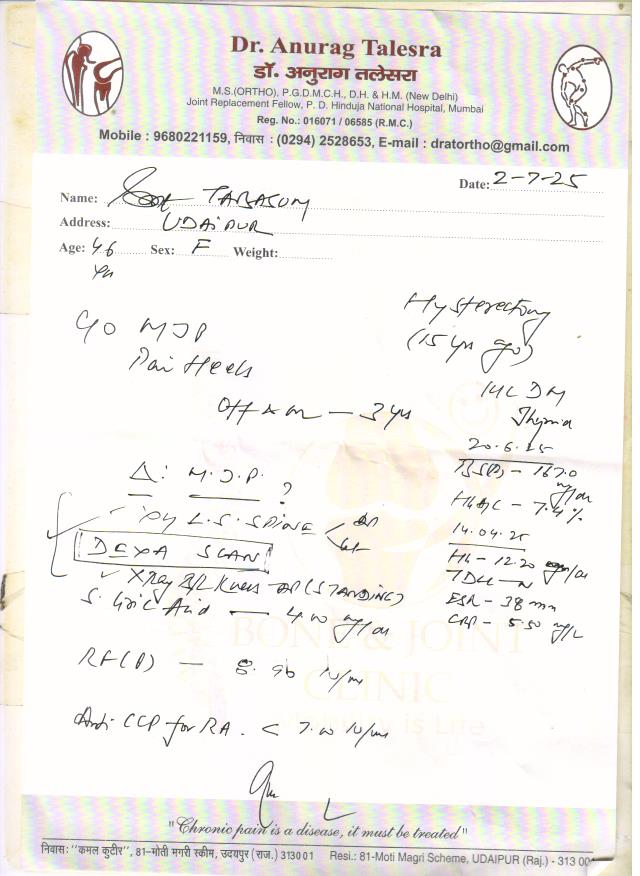 Dr. Anurag Talesra
डॉ. अनुराग तलेसरा
M.S.(ORTHO), P.G.D.M.C.H., D.H. & H.M. (New Delhi)
Joint Replacement Fellow, P. D. Hinduja National Hospital, Mumbai
Reg. No.: 016071 / 06585 (R.M.C.)
Mobile : 9680221159, निवास : (0294) 2528653, E-mail : dratortho@gmail.com
Date: 2-7-25
Name: TABASUM
Address: UDAIPUR
Age: 46 Sex: F Weight:
Hysterectomy
(15 yrs ago)
MJP
Pain Heels
Off & on - 3 yrs
DM
20.6.25
- 167.0
HbAC - 7.4%
14.04.25
Hb - 12.20
TDLC - N
ESR - 38 mm
CRP - 5.50 mg/L
Δ: M.J.P. ?
L.S. SPINE
DEXA SCAN
✓ Xray B/L Knees AP (STANDING)
S. Uric Acid - 4.10 mg/dl
RF(P) - 8.96 IU/ml
Anti CCP for RA. < 7.0 IU/ml
BONE & JOINT
CLINIC
is Life
"Chronic pain is a disease, it must be treated"
निवास: "कमल कुटीर", 81-मोती मगरी स्कीम, उदयपुर (राज.) 313001 Resi.: 81-Moti Magri Scheme, UDAIPUR (Raj.) - 313 001